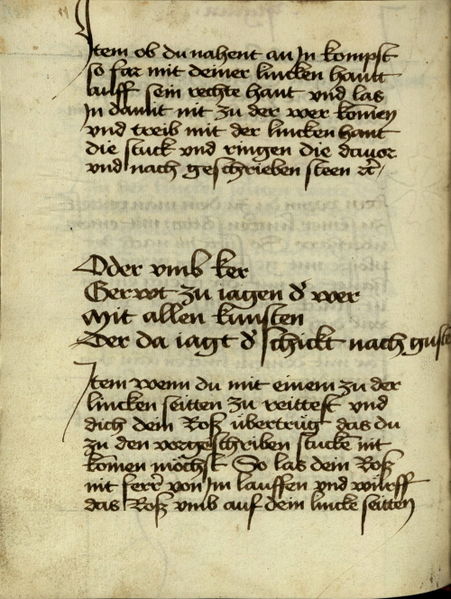 Item ob du nahent an In kompst
so far mit deiner lincken hantt
auff sein rechte hant vnd las
In damit nit zu der wer komen
vnd treib mit der lincken hant
die stuck vnd ringen die dauor
vnd nach geschrieben steen etc
Oder vmb ker
Gerwt zu iagen d' wer
Mit allen kunsten
Der da iagt d' schickt nach gusten
Item wenn du mit einem zu der
lincken seitten zu reittest vnd
dich dein Roß übertrüg das du
zu den vorgeschriben stucken nit
komen möchst So las dein Roß
nit ferr von Im lauffen vnd würff
das Roß vmb auf dein lincke seitten